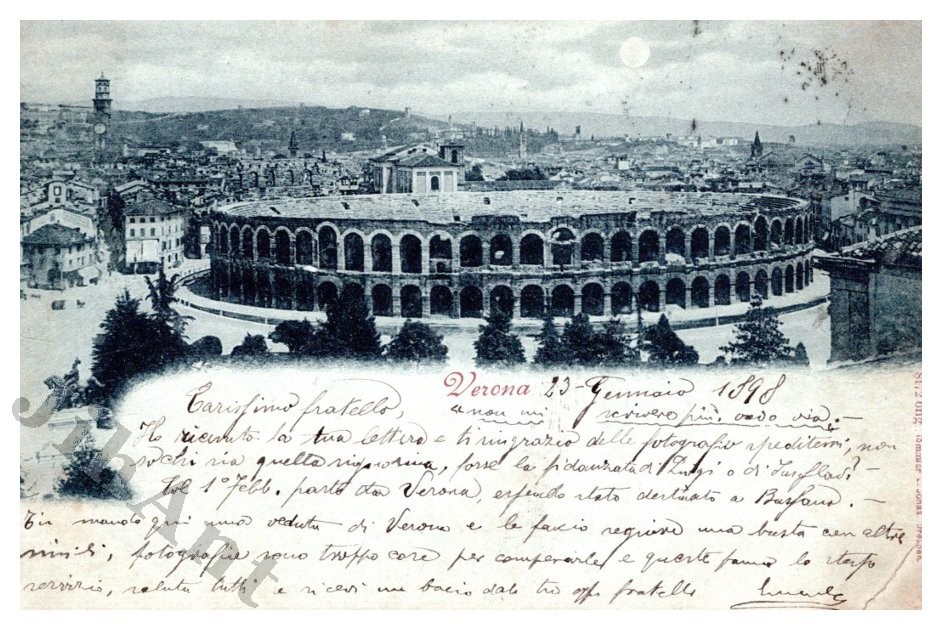 Verona 23 Gennaio 1898
"non mi scrivere più, vado via"-
Carissimo fratello,
Ho ricevuto la tua lettera e ti ringrazio delle fotografie speditemi, non
so chi sia quella signorina, forse la fidanzata di Luigi o di
Col 1° Febb. parto da Verona, essendo stato destinato a Bassano. -
Ti mando qui una veduta di Verona e la faccio seguire una busta con altre
simili, fotografie sono troppo care per comperarle e queste fanno lo stesso
servizio, saluta tutti e ricevi un bacio dal tuo aff. fratello
Jth Ant